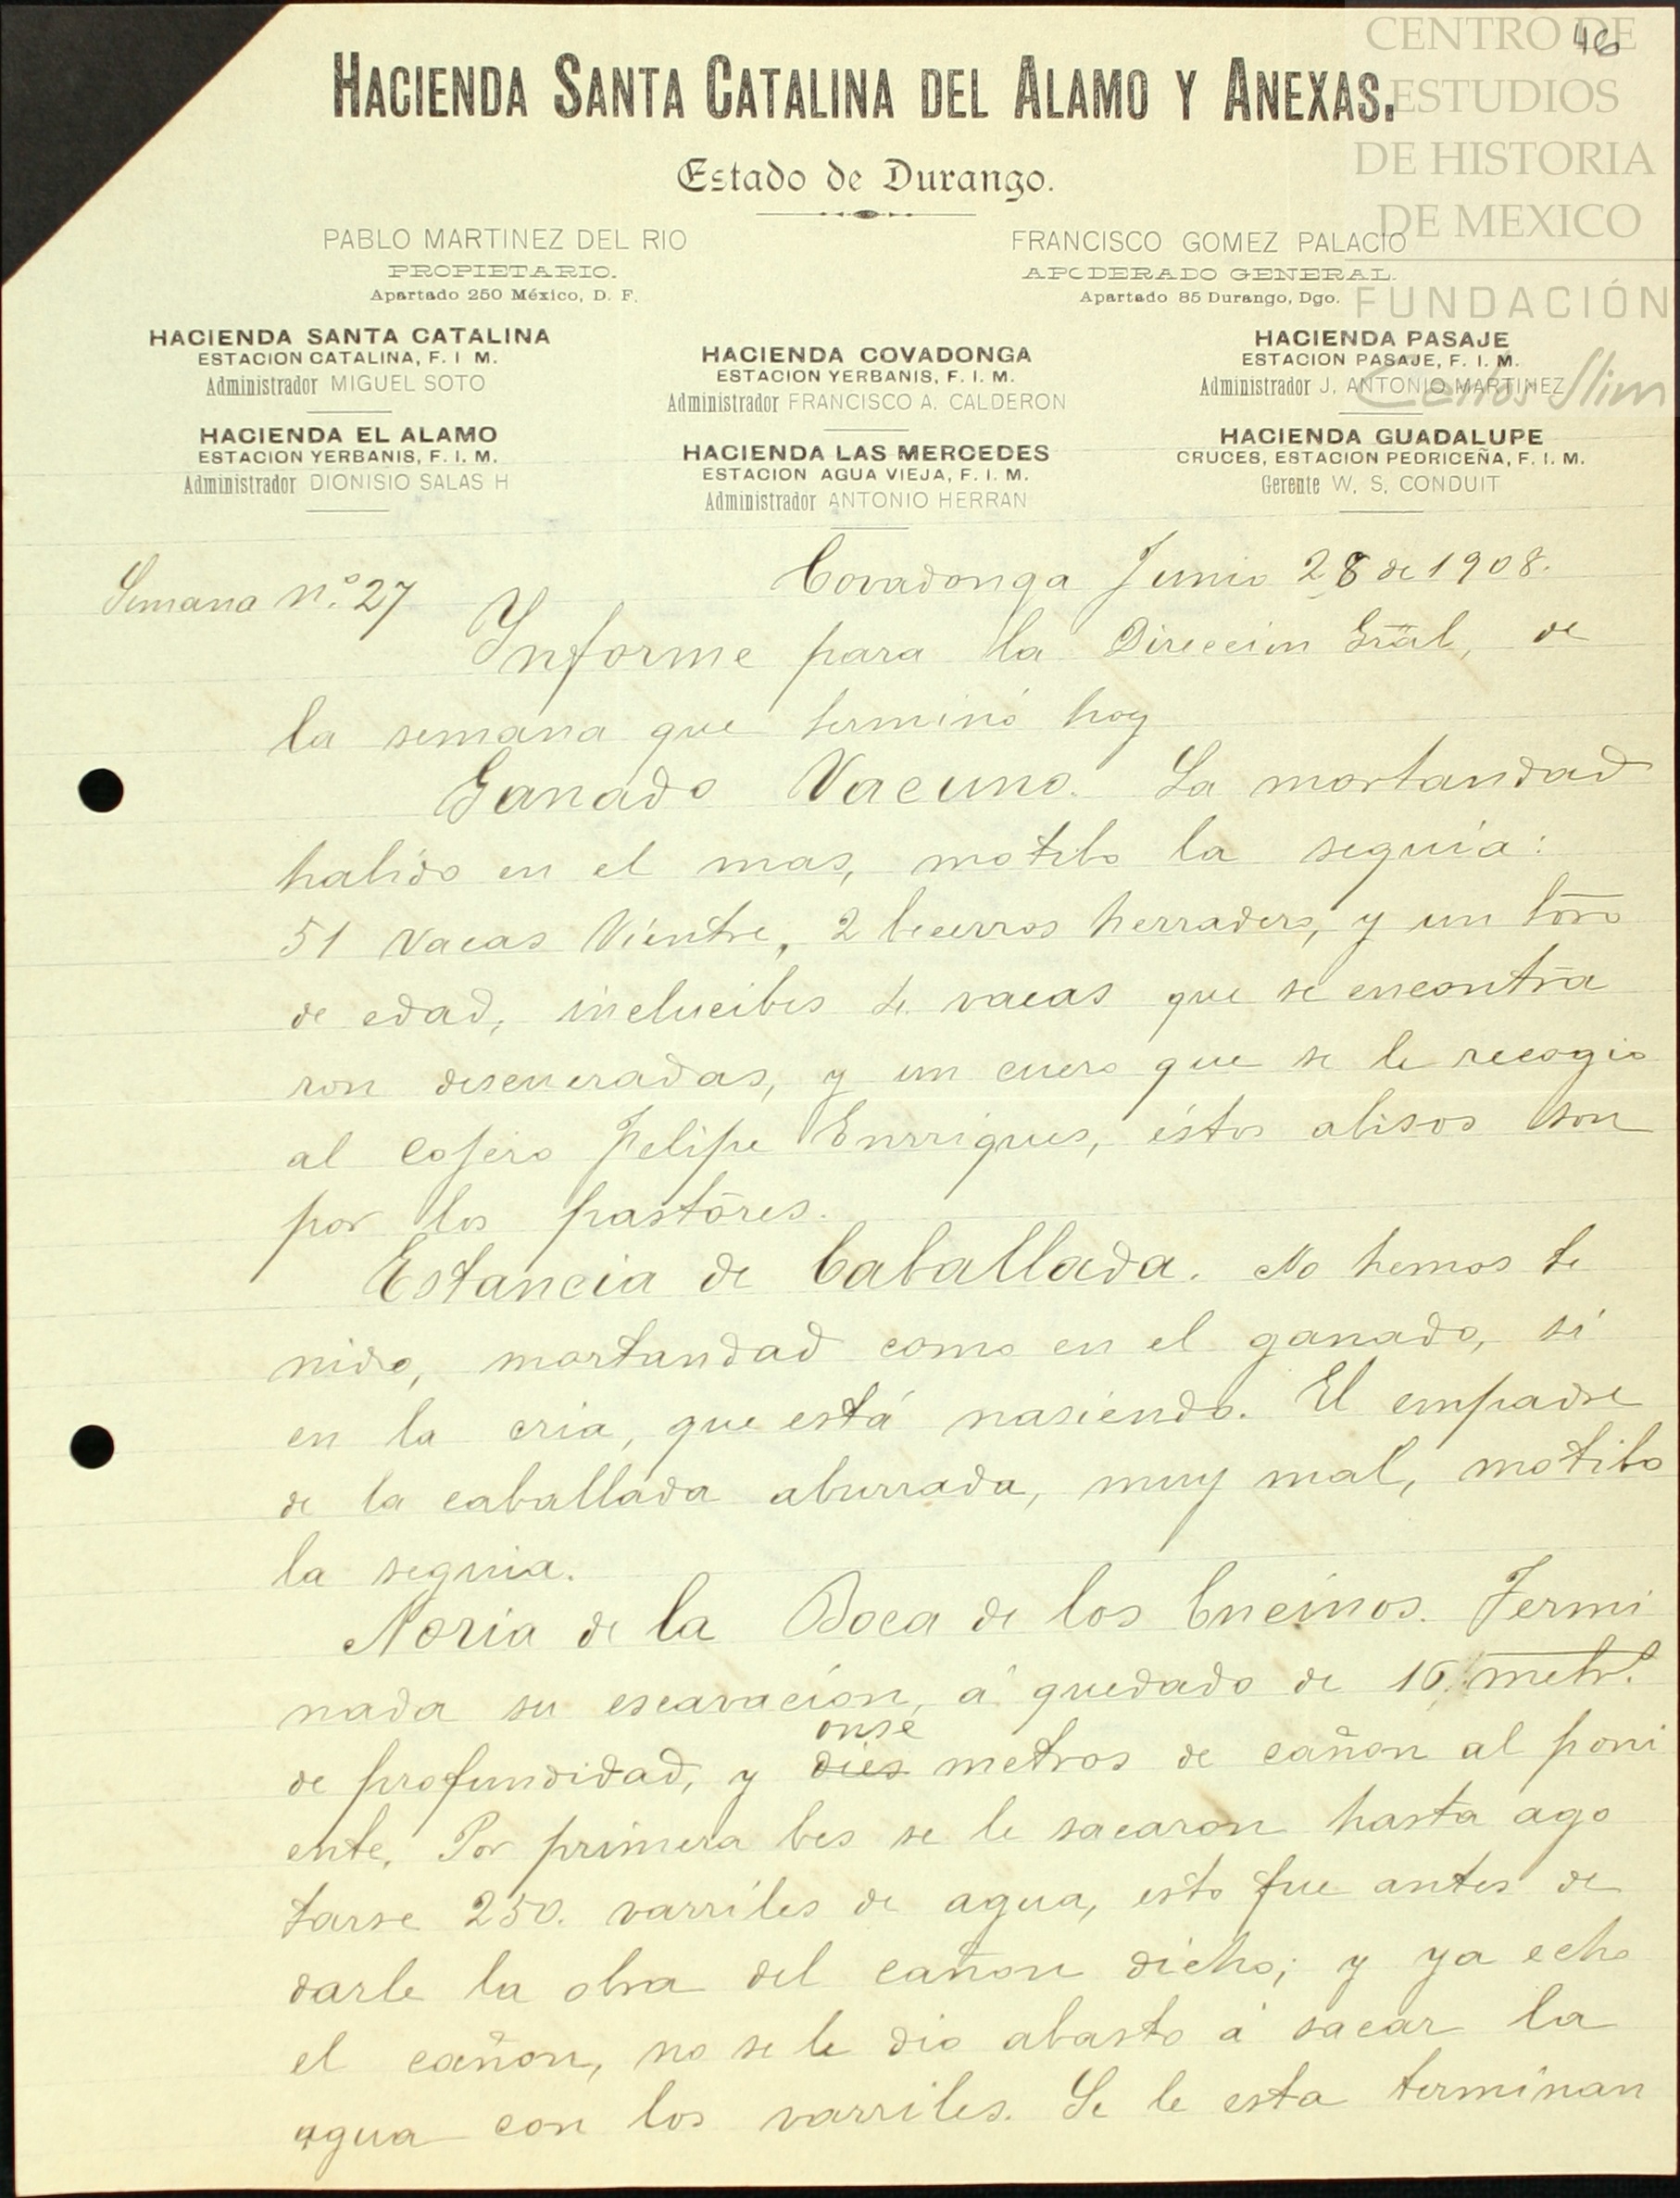 46
CENTRO DE
ESTUDIOS
DE HISTORIA
DE MEXICO
FUNDACIÓN
Carlos Slim
HACIENDA SANTA CATALINA DEL ALAMO Y ANEXAS.
Estado de Durango.
PABLO MARTINEZ DEL RIO
PROPIETARIO.
Apartado 250 México, D. F.
FRANCISCO GOMEZ PALACIO
APODERADO GENERAL.
Apartado 85 Durango, Dgo.
HACIENDA SANTA CATALINA
ESTACION CATALINA, F. I M.
Administrador MIGUEL SOTO
HACIENDA EL ALAMO
ESTACION YERBANIS, F. I. M.
Administrador DIONISIO SALAS H
HACIENDA COVADONGA
ESTACION YERBANIS, F. I. M.
Administrador FRANCISCO A. CALDERON
HACIENDA LAS MERCEDES
ESTACION AGUA VIEJA, F. I. M.
Administrador ANTONIO HERRAN
HACIENDA PASAJE
ESTACION PASAJE, F. I. M.
Administrador J. ANTONIO MARTINEZ
HACIENDA GUADALUPE
CRUCES, ESTACION PEDRICEÑA, F. I. M.
Gerente W. S. CONDUIT
Covadonga Junio 28 de 1908.
Semana n.º 27
Informe para la Direccion Gral, de
la semana que terminó hoy
Ganado Vacuno. La mortandad
habido en el mas, motibo la seguia:
51 vacas vientre, 2 becerros herradero, y un toro
de edad, inclucibes vacas que se encontra
ron descueradas, y un cuero que se le recogio
al Felipe Enrriques, éstos abisos son
por los pastores.
Estancia de Caballada. No hemos te
nido, mortandad como en el ganado, sí
en la cria, que está nasiendo. El empadre
de la caballada aburrada, muy mal, motibo
la seguia.
Noria de la Boca de los Encinos. Termi
nada su escavación, á quedado de 16 metr.s
de profundidad, y dies onse metros de cañon al poni
ente. Por primera bes se le sacaron hasta ago
tarse 250. varriles de agua, esto fue antes de
darle la obra del cañon dicho; y ya echo
el cañon, no se le dio abasto á sacar la
agua con los varriles. Se le esta terminan